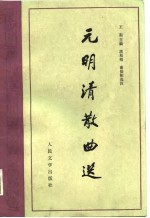 元明清散曲选
人民文学出版社